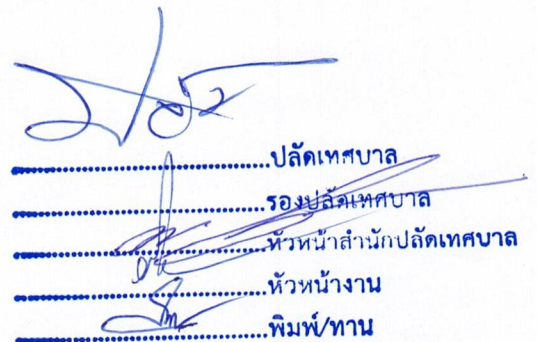 ........................................ปลัดเทศบาล
........................................รองปลัดเทศบาล
........................................หัวหน้าสำนักปลัดเทศบาล
........................................หัวหน้างาน
........................................พิมพ์/ทาน